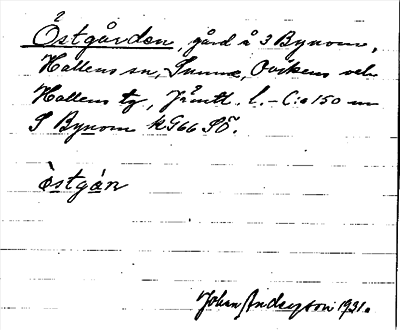 Östgården, gård å 3 Bynom,
Hallens sn, Sunne, Ovikens och
Hallens tg, Jämtl. l. – C:a 150 m
S Bynom kG66 SÖ.
òstgán
Johan Andersson 1931.